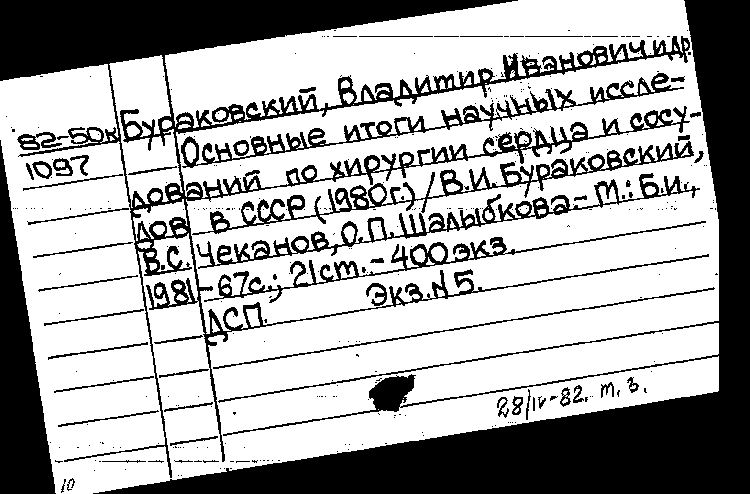 82-50к
1097
Бураковский, Владимир Иванович и др.
Основные итоги научных иссле-
дований по хирургии сердца и сосу-
дов в СССР (1980г.) / В.И. Бураковский,
В.С. Чеканов, О.П. Шалыбкова. - М.: Б.и.,
1981 - 67с.; 21cm. - 400 экз.
ДСП. Экз. N 5.
28/IV-82. т. з.
10